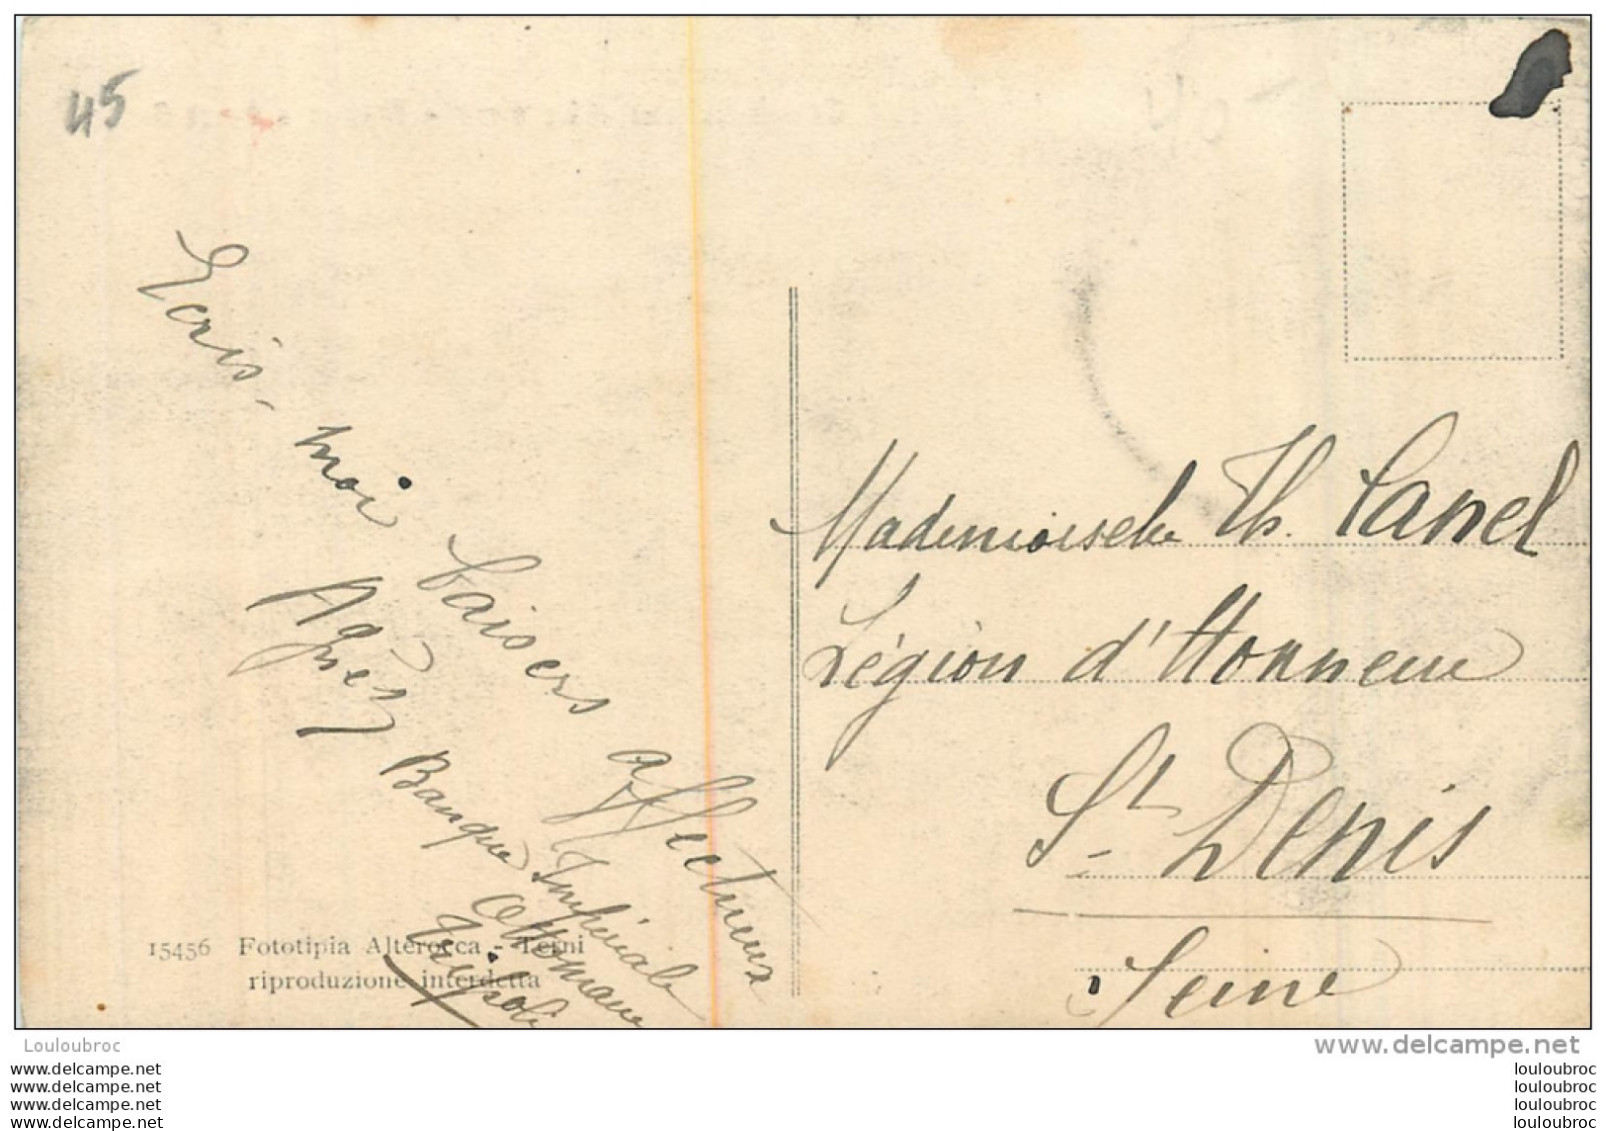 45
Ecris-moi baisers affectueux
Agnès
Banque Impériale
Ottomane
Tripoli
15456 Fototipia Alterocca - Terni
riproduzione interdetta
Mademoiselle Th. Canel
Légion d'Honneur
St Denis
Seine
Louloubroc
www.delcampe.net
www.delcampe.net
www.delcampe.net
www.delcampe.net
www.delcampe.net
louloubroc
louloubroc
louloubroc
louloubroc